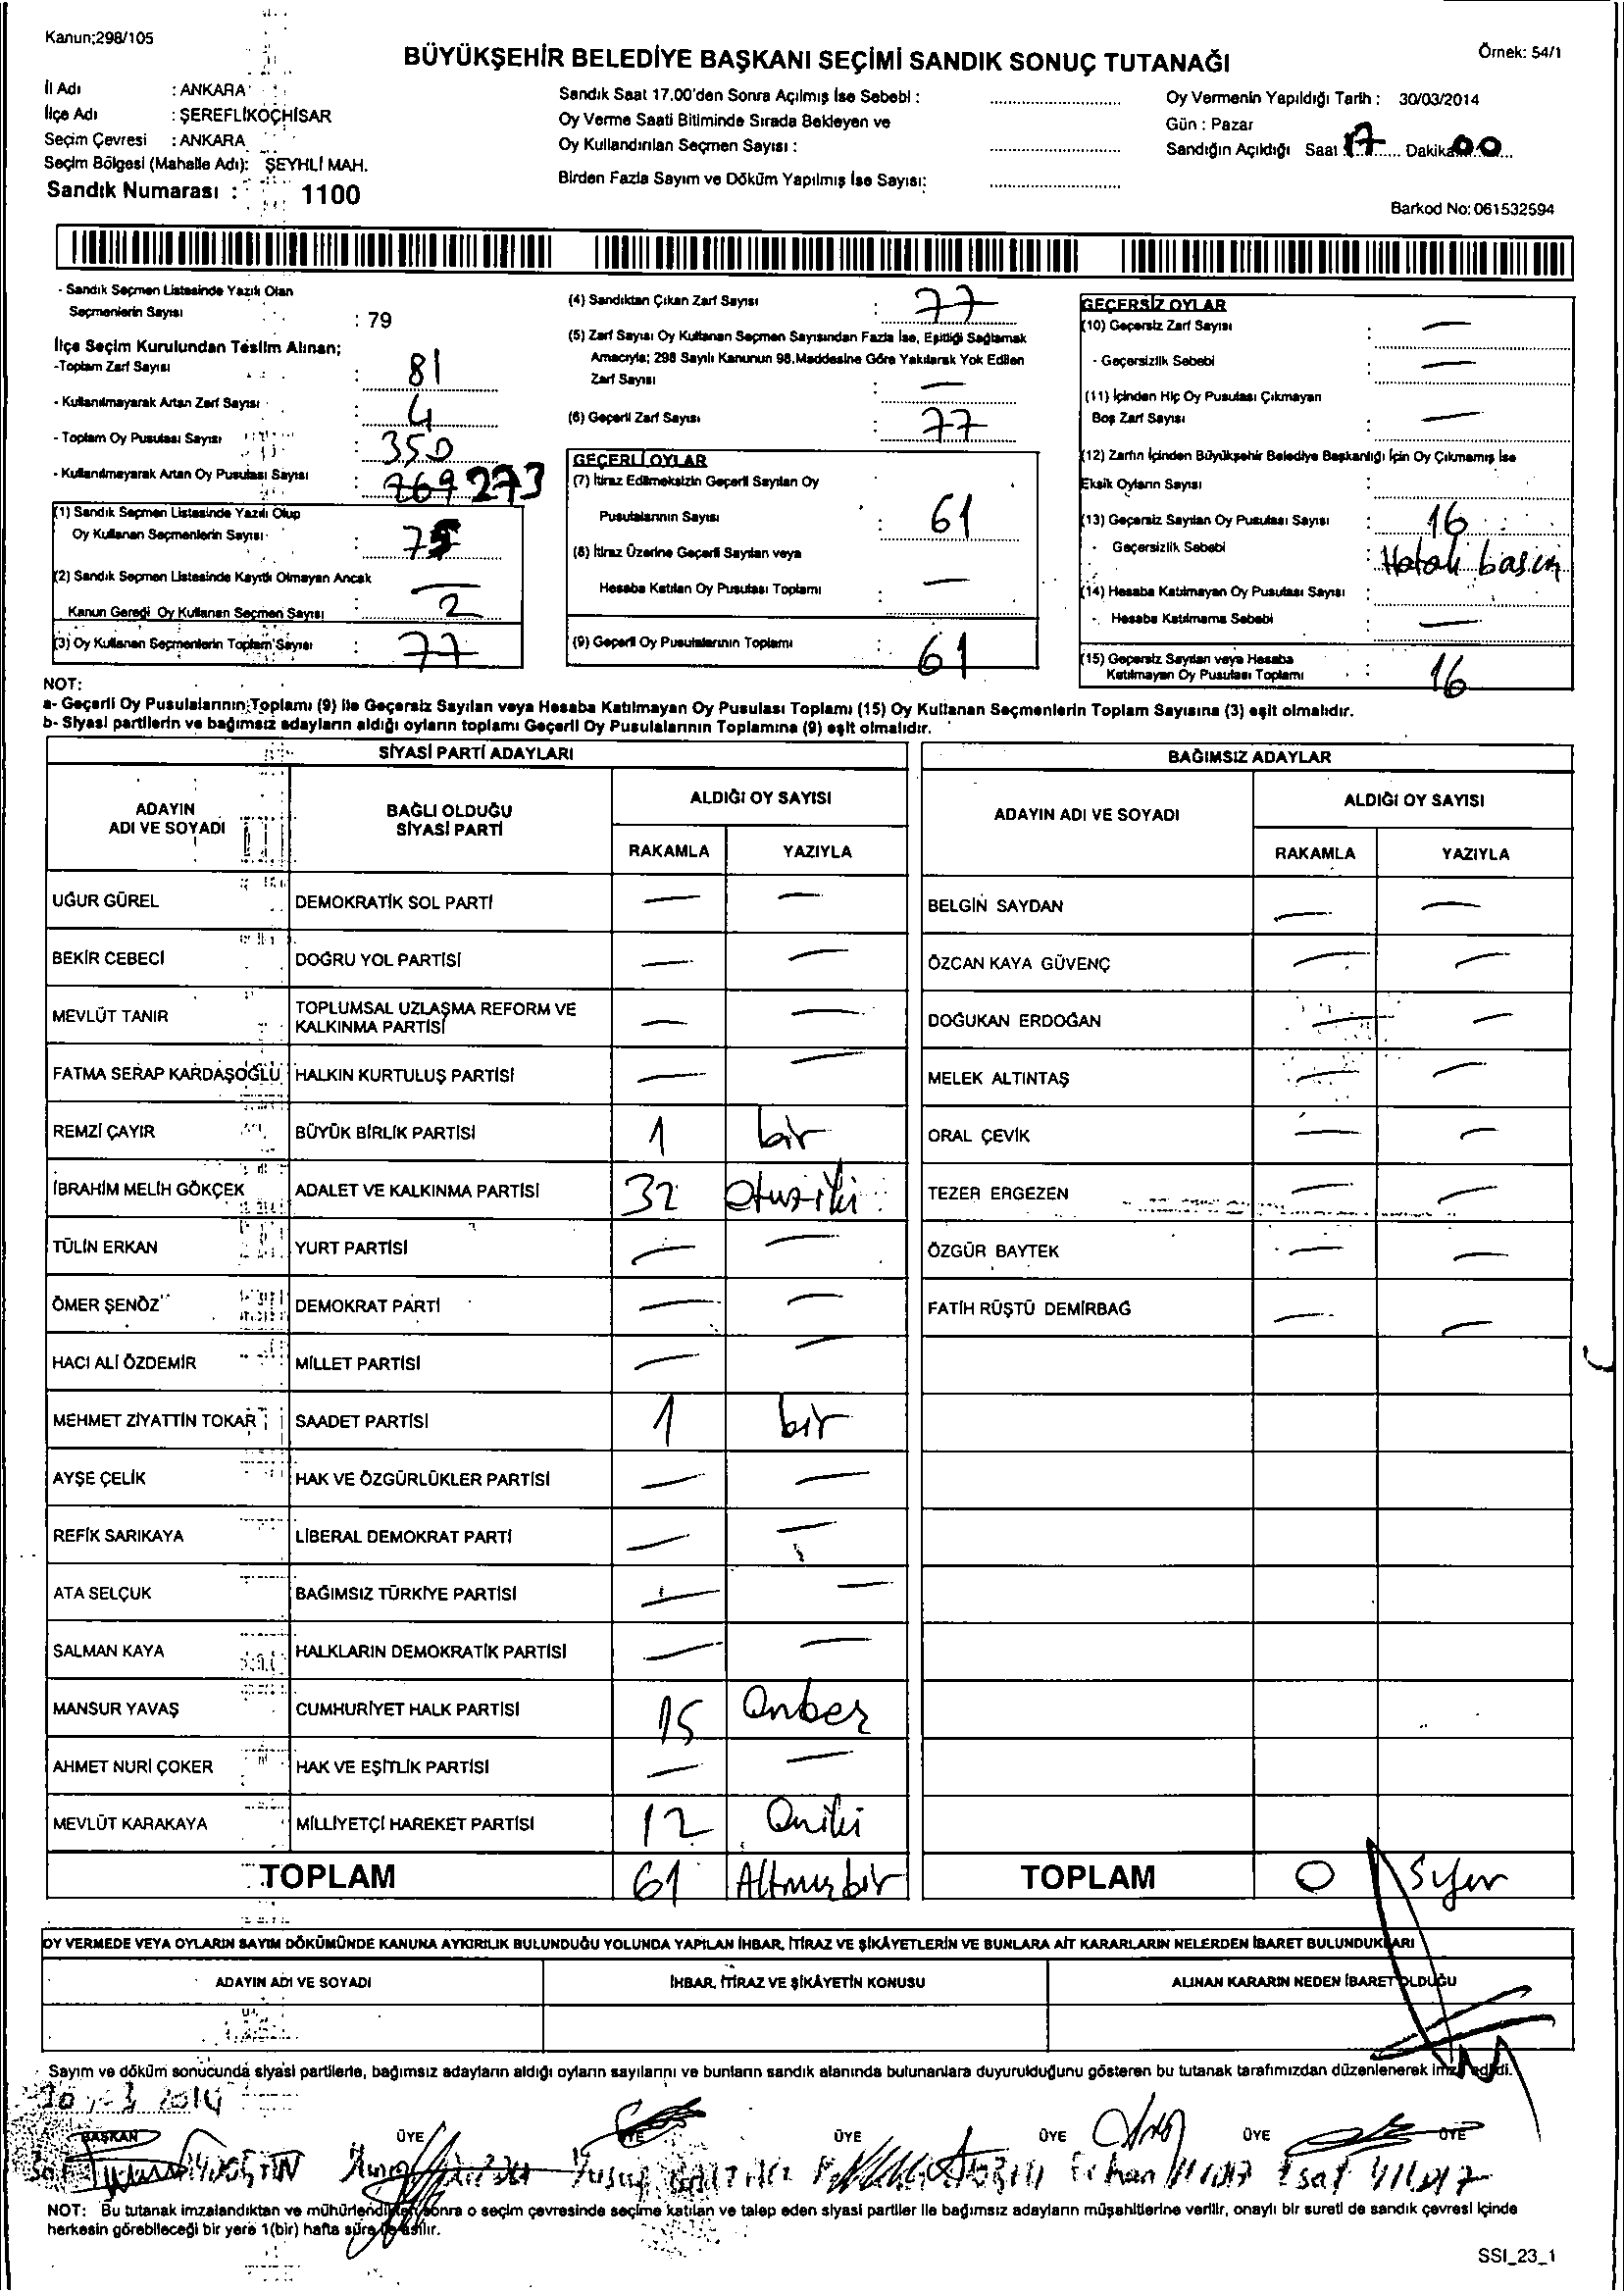 Kanun;298/105
BÜYÜKŞEHİR BELEDİYE BAŞKANI SEÇİMİ SANDIK SONUÇ TUTANAĞI
Örnek: 54/1
İl Adı : ANKARA
İlçe Adı : ŞEREFLİKOÇHİSAR
Seçim Çevresi : ANKARA
Seçim Bölgesi (Mahalle Adı): ŞEYHLİ MAH.
Sandık Numarası : 1100
Sandık Saat 17.00'den Sonra Açılmış İse Sebebi :
Oy Verme Saati Bitiminde Sırada Bekleyen ve
Oy Kullandırılan Seçmen Sayısı :
Birden Fazla Sayım ve Döküm Yapılmış İse Sayısı:
Oy Vermenin Yapıldığı Tarih : 30/03/2014
Gün : Pazar
Sandığın Açıldığı Saat 17 Dakika 00
Barkod No: 061532594
- Sandık Seçmen Listesinde Yazılı Olan
Seçmenlerin Sayısı : 79
İlçe Seçim Kurulundan Teslim Alınan;
-Toplam Zarf Sayısı : 81
- Kullanılmayarak Artan Zarf Sayısı : 4
- Toplam Oy Pusulası Sayısı : 350
- Kullanılmayarak Artan Oy Pusulası Sayısı : 269 273
(1) Sandık Seçmen Listesinde Yazılı Olup
Oy Kullanan Seçmenlerin Sayısı : 75
(2) Sandık Seçmen Listesinde Kayıtlı Olmayan Ancak
Kanun Gereği Oy Kullanan Seçmen Sayısı : 2
(3) Oy Kullanan Seçmenlerin Toplam Sayısı : 77
(4) Sandıktan Çıkan Zarf Sayısı : 77
(5) Zarf Sayısı Oy Kullanan Seçmen Sayısından Fazla İse, Eşitliği Sağlamak
Amacıyla; 298 Sayılı Kanunun 98.Maddesine Göre Yakılarak Yok Edilen
Zarf Sayısı : —
(6) Geçerli Zarf Sayısı : 77
GEÇERLİ OYLAR
(7) İtiraz Edilmeksizin Geçerli Sayılan Oy
Pusulalarının Sayısı : 61
(8) İtiraz Üzerine Geçerli Sayılan veya
Hesaba Katılan Oy Pusulası Toplamı : —
(9) Geçerli Oy Pusulalarının Toplamı : 61
GEÇERSİZ OYLAR
(10) Geçersiz Zarf Sayısı : —
- Geçersizlik Sebebi : —
(11) İçinden Hiç Oy Pusulası Çıkmayan
Boş Zarf Sayısı : —
(12) Zarfın İçinden Büyükşehir Belediye Başkanlığı İçin Oy Çıkmamış İse
Eksik Oyların Sayısı :
(13) Geçersiz Sayılan Oy Pusulası Sayısı : 16
- Geçersizlik Sebebi : Hatalı basım
(14) Hesaba Katılmayan Oy Pusulası Sayısı :
- Hesaba Katılmama Sebebi : —
(15) Geçersiz Sayılan veya Hesaba
Katılmayan Oy Pusulası Toplamı : 16
NOT:
a- Geçerli Oy Pusulalarının Toplamı (9) ile Geçersiz Sayılan veya Hesaba Katılmayan Oy Pusulası Toplamı (15) Oy Kullanan Seçmenlerin Toplam Sayısına (3) eşit olmalıdır.
b- Siyasi partilerin ve bağımsız adayların aldığı oyların toplamı Geçerli Oy Pusulalarının Toplamına (9) eşit olmalıdır.
SİYASİ PARTİ ADAYLARI
ADAYIN ADI VE SOYADI BAĞLI OLDUĞU SİYASİ PARTİ ALDIĞI OY SAYISI
RAKAMLA YAZIYLA
UĞUR GÜREL DEMOKRATİK SOL PARTİ — —
BEKİR CEBECİ DOĞRU YOL PARTİSİ — —
MEVLÜT TANIR TOPLUMSAL UZLAŞMA REFORM VE KALKINMA PARTİSİ — —
FATMA SERAP KARDAŞOĞLU HALKIN KURTULUŞ PARTİSİ — —
REMZİ ÇAYIR BÜYÜK BİRLİK PARTİSİ 1 bir
İBRAHİM MELİH GÖKÇEK ADALET VE KALKINMA PARTİSİ 32 otuziki
TÜLİN ERKAN YURT PARTİSİ — —
ÖMER ŞENÖZ DEMOKRAT PARTİ — —
HACI ALİ ÖZDEMİR MİLLET PARTİSİ — —
MEHMET ZİYATTİN TOKAR SAADET PARTİSİ 1 bir
AYŞE ÇELİK HAK VE ÖZGÜRLÜKLER PARTİSİ — —
REFİK SARIKAYA LİBERAL DEMOKRAT PARTİ — —
ATA SELÇUK BAĞIMSIZ TÜRKİYE PARTİSİ — —
SALMAN KAYA HALKLARIN DEMOKRATİK PARTİSİ — —
MANSUR YAVAŞ CUMHURİYET HALK PARTİSİ 15 Onbeş
AHMET NURİ ÇOKER HAK VE EŞİTLİK PARTİSİ — —
MEVLÜT KARAKAYA MİLLİYETÇİ HAREKET PARTİSİ 12 Oniki
TOPLAM 61 Altmışbir
BAĞIMSIZ ADAYLAR
ADAYIN ADI VE SOYADI ALDIĞI OY SAYISI
RAKAMLA YAZIYLA
BELGİN SAYDAN — —
ÖZCAN KAYA GÜVENÇ — —
DOĞUKAN ERDOĞAN — —
MELEK ALTINTAŞ — —
ORAL ÇEVİK — —
TEZER ERGEZEN — —
ÖZGÜR BAYTEK — —
FATİH RÜŞTÜ DEMİRBAĞ — —
TOPLAM 0 Sıfır
OY VERMEDE VEYA OYLARIN SAYIM DÖKÜMÜNDE KANUNA AYKIRILIK BULUNDUĞU YOLUNDA YAPILAN İHBAR, İTİRAZ VE ŞİKÂYETLERİN VE BUNLARA AİT KARARLARIN NELERDEN İBARET BULUNDUKLARI
ADAYIN ADI VE SOYADI İHBAR, İTİRAZ VE ŞİKÂYETİN KONUSU ALINAN KARARIN NEDEN İBARET OLDUĞU
Sayım ve döküm sonucunda siyasi partilerle, bağımsız adayların aldığı oyların sayılarını ve bunların sandık alanında bulunanlara duyurulduğunu gösteren bu tutanak tarafımızdan düzenlenerek imza edildi.
30.-3 2014
BAŞKAN ÜYE ÜYE ÜYE ÜYE ÜYE ÜYE
Yusuf Erhan Esat
NOT: Bu tutanak imzalandıktan ve mühürlendikten sonra o seçim çevresinde seçime katılan ve talep eden siyasi partiler ile bağımsız adayların müşahitlerine verilir, onaylı bir sureti de sandık çevresi içinde
herkesin görebileceği bir yere 1(bir) hafta süre ile asılır.
SSI_23_1